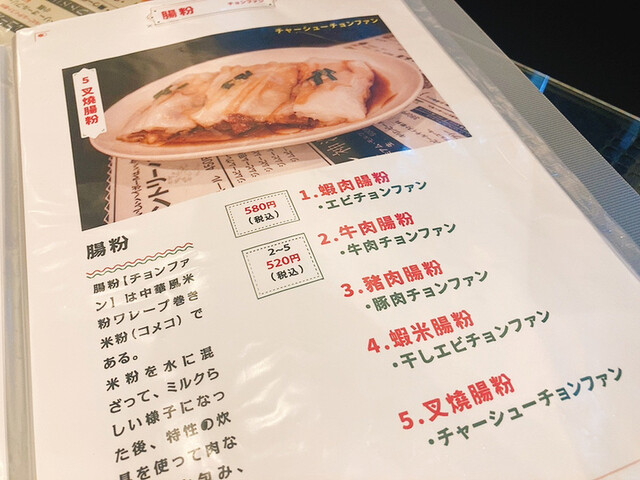 腸粉
チョンファン
チャーシューチョンファン
5 叉燒腸粉
580円
(税込)
2～5
520円
(税込)
1.蝦肉腸粉
・エビチョンファン
2.牛肉腸粉
・牛肉チョンファン
3.豬肉腸粉
・豚肉チョンファン
4.蝦米腸粉
・干しエビチョンファン
5.叉燒腸粉
・チャーシューチョンファン
腸粉
腸粉【チョンファ
ン】は中華風米
粉ワレープ巻き
米粉(コメコ)で
ある。
米粉を水に混
ざって、ミルクら
しい様子になっ
た後、特性の炊
具を使って肉な
包み、